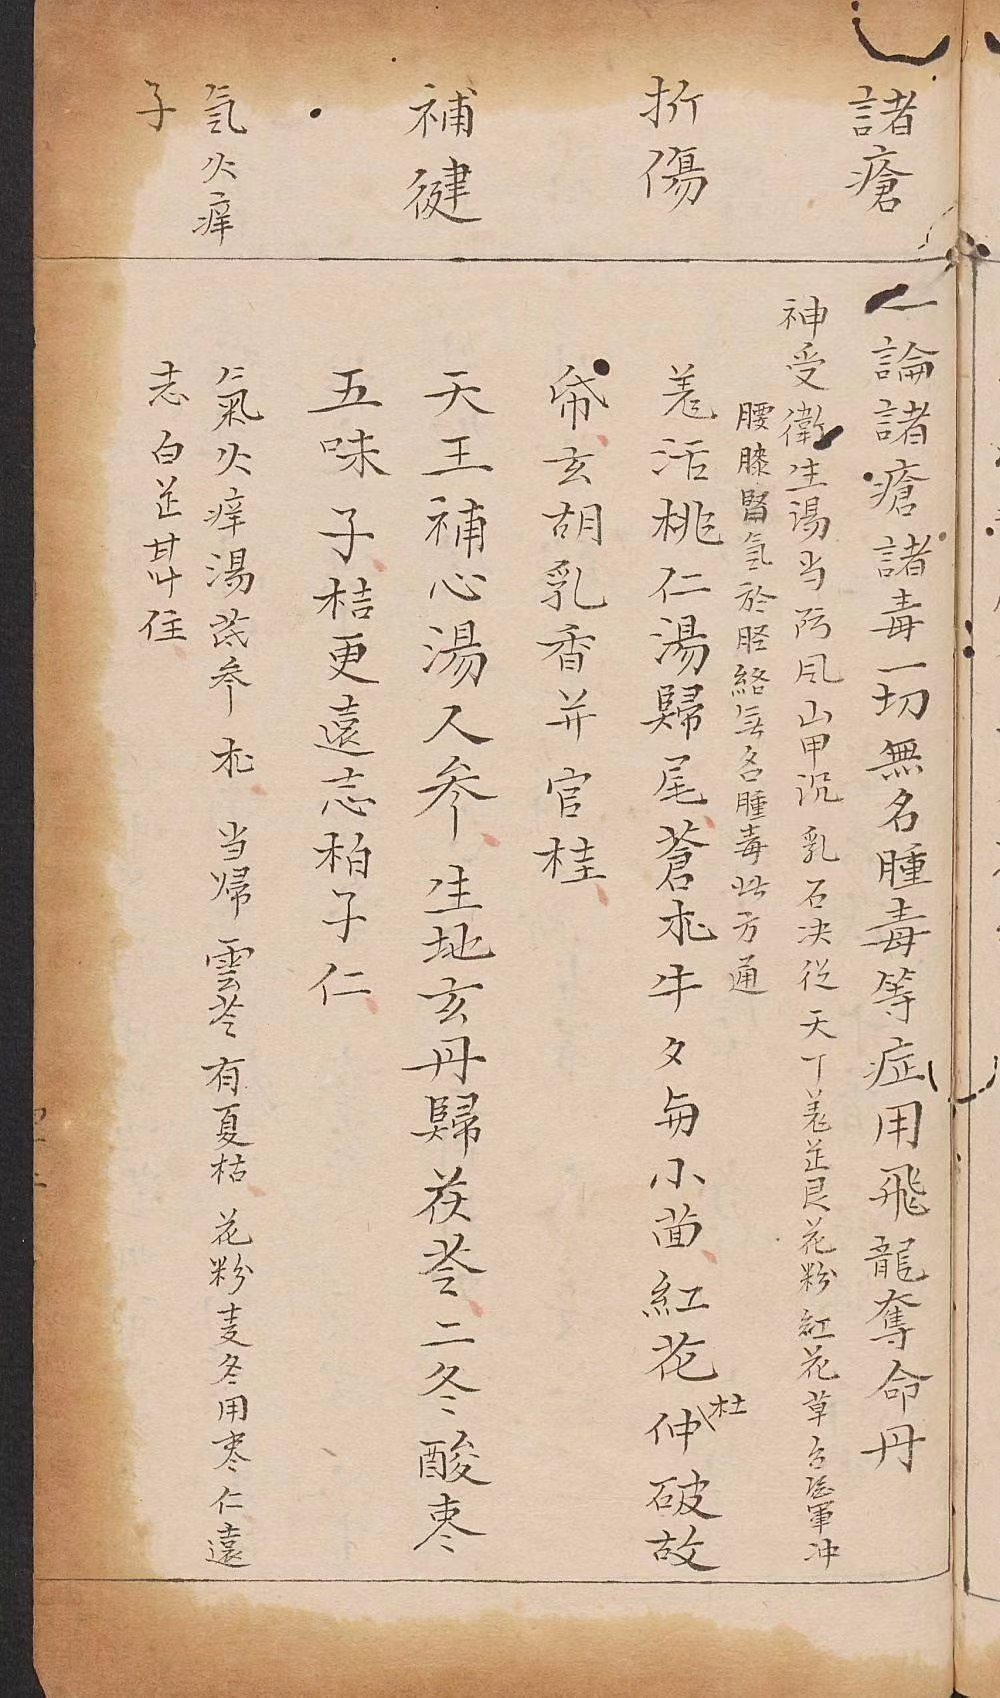 諸瘡
一論諸瘡諸毒一切無名腫毒等症用飛龍奪命丹
神受衛生湯当防风山甲沉乳石决從天丁羌芷艮花粉紅花草台陸軍冲
腰膝腎氣於胫絡無名腫毒此方通
折傷
羗活桃仁湯歸尾蒼朮牛夕与小茴紅花杜仲破故
帋玄胡乳香并官桂
補健
天王補心湯人參生地玄丹歸茯苓二冬酸枣
五味子桔更遠志柏子仁
氣火痒
子
氣火痒湯芪参朮当帰雲苓有夏枯花粉麦冬用枣仁遠
志白芷甘